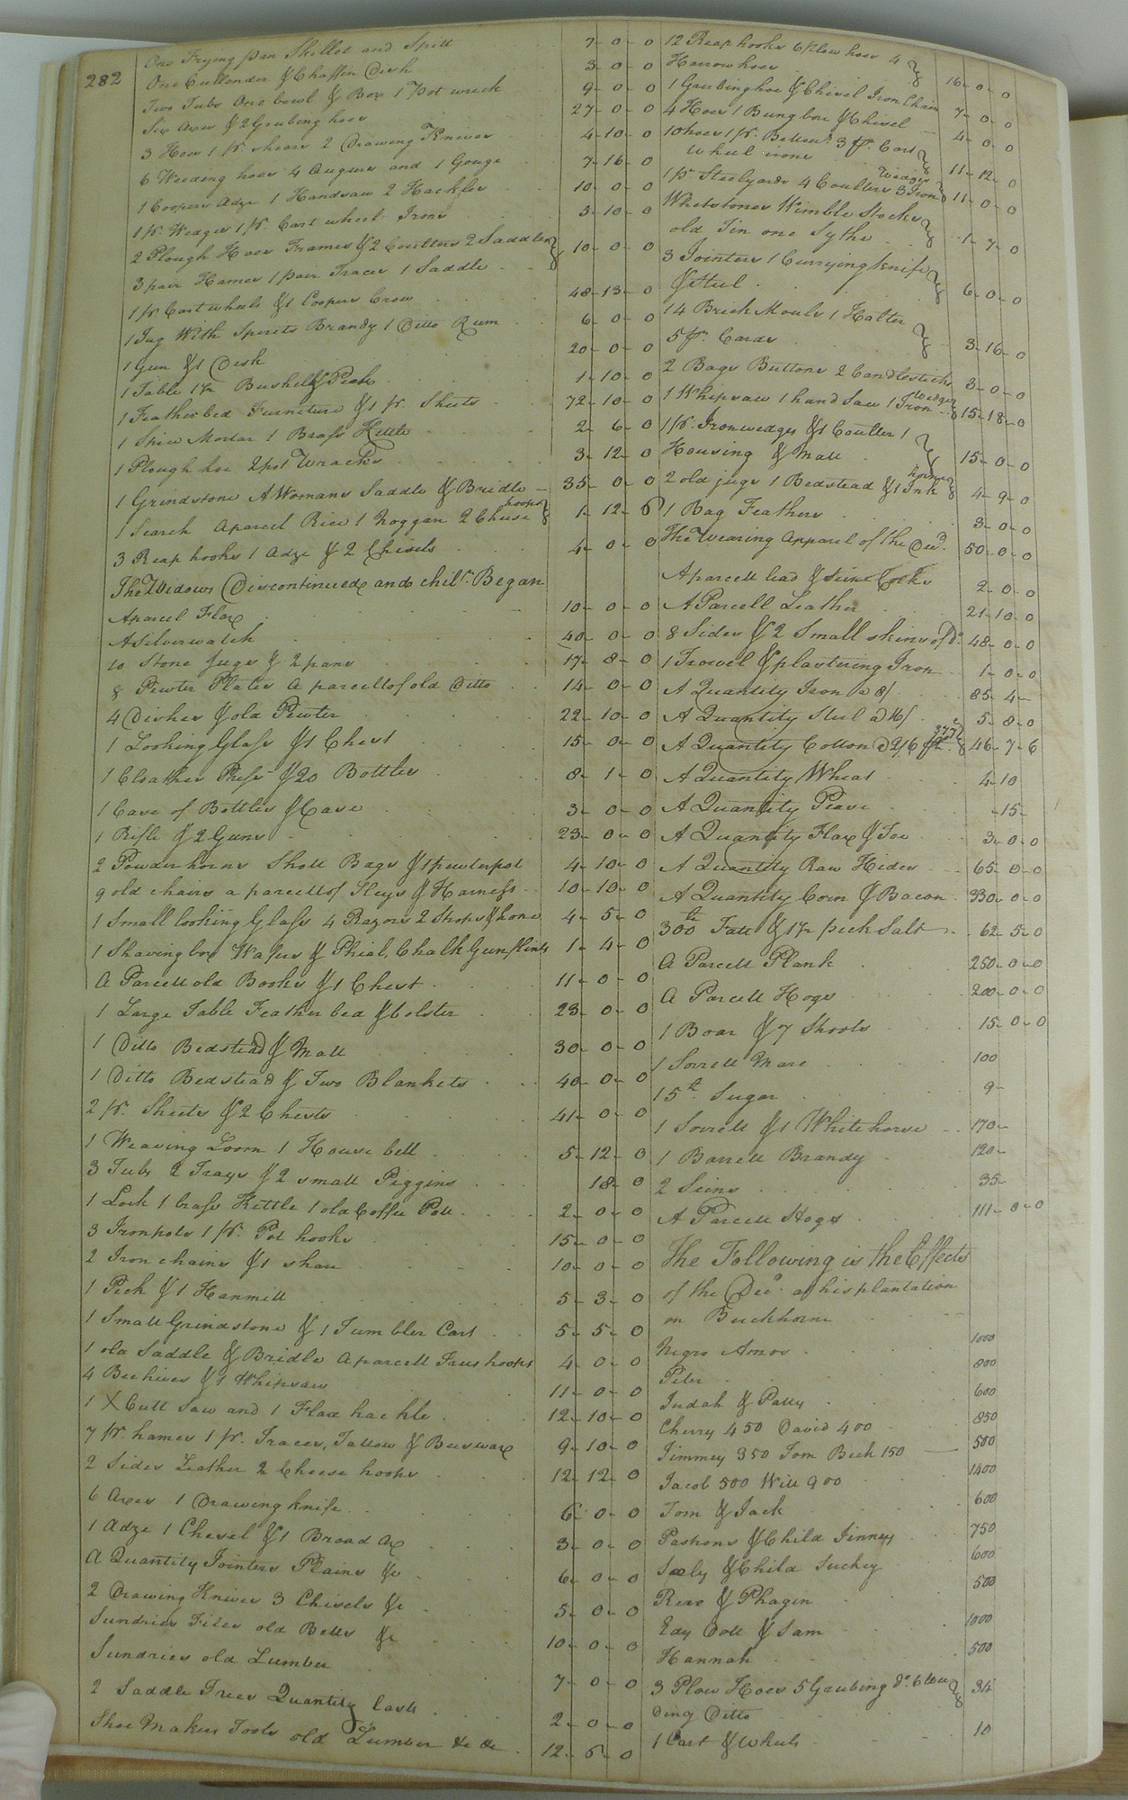 282
One Frying pan Skillet and Spitt 7-0-0
One Cullender & Chaffin Dish 3-0-0
Two Tubs One bowl & Box 1 Pot wreck 9-0-0
Six Axes & 2 Grubing hoes 27-0-0
3 Hoes 1 pr. shears 2 Drawing Knives 4-10-0
6 Weeding hoes 4 Augurs and 1 Gouge 7-16-0
1 Coopers Adze 1 Handsaw 2 Hackles 10-0-0
1 pr. Wedges 1 pr. Cart wheel Irons 3-10-0
2 Plough Hoes Frames & 2 Coulters 2 Saddles
3 pair Hames 1 pair Traces 1 Saddle 10-0-0
1 pr Cart wheels & 1 Coopers Crow 48-13-0
1 Jug With Spirits Brandy 1 Ditto Rum 6-0-0
1 Gun & 1 Dish 20-0-0
1 Table 1 Bushell & Peck 1-10-0
1 Feather bed Furniture & 1 pr. Sheets 72-10-0
1 Spice Mortar 1 Brass Kettle 2-6-0
1 Plough hoe 2 pot Wracks 3-12-0
1 Grindstone A Womans Saddle & Bridle 35-0-0
1 Search A parcel Rice 1 Noggan 2 Cheese hoops 1-12-6
3 Reap hooks 1 Adze & 2 Chisels 4-0-0
The Widows Discontinued and chiln. Began
A parcel Flax 10-0-0
A silver watch 40-0-0
10 Stone Jugs & 2 pans 17-8-0
8 Pewter Plates a parcell of old Ditto 14-0-0
4 Dishes & old Pewter 22-10-0
1 Looking Glass & 1 Chest 15-0-0
1 Cloathes Press & 20 Bottles 8-1-0
1 Case of Bottles & Case 3-0-0
1 Rifle & 2 Guns 23-0-0
2 Powder horns Shott Bags & 1 pewter pot 4-10-0
9 old chairs a parcell of Sleys & Harness 10-10-0
1 Small looking Glass 4 Razors 2 Strops & hone 4-5-0
1 Shaving box Wafers & Phial, Chalk Gun flints 1-4-0
A Parcell old Books & 1 Chest 11-0-0
1 Large Table Feather bed & bolster 23-0-0
1 Ditto Bedstead & Matt 30-0-0
1 Ditto Bedstead & Two Blankets 40-0-0
2 pr. Sheets & 2 Chests 41-0-0
1 Weaving Loom 1 House bell 5-12-0
3 Tubs 2 Trays & 2 small Piggins 18-0
1 Lock 1 brass Kettle 1 old Coffee Pott 2-0-0
3 Iron pots 1 pr. Pot hooks 15-0-0
2 Iron chains & 1 share 10-0-0
1 Peck & 1 Hanmill 5-3-0
1 Small Grindstone & 1 Tumbler Cart 5-5-0
1 old Saddle & Bridle A parcell Truss hoops 4-0-0
4 Beehives & 1 Whipsaw 11-0-0
1 X Cutt Saw and 1 Flax hackle 12-10-0
7 pr. hames 1 pr. Traces, Tallow & Beeswax 9-10-0
2 Sides Leather 2 Cheese hoops 12-12-0
6 Axes 1 Drawing knife 6-0-0
1 Adze 1 Chesel & 1 Broad ax 3-0-0
A Quantity Jointers Plains &c 6-0-0
2 Drawing Knives 3 Chisels &c 5-0-0
Sundries Files old Bells &c 10-0-0
Sundries old Lumber 7-0-0
2 Saddle Trees Quantity Casts 2-0-0
Shoe Makers Tools old Lumber &c &c 12-6-0
12 Reap hooks 6 plow hoes 4
Harrow hoes 16-0-0
1 Grubing hoe & Chisel Iron Chain 7-0-0
4 Hoes 1 Bung bore & Chisel 4-0-0
10 hoes 1 pr. Bellows 3 pr. Cart
wheel irons 11-12-0
1 pr Steelyards 4 Coulters 3 Iron Wedges 11-0-0
Whetstones Wimble Stocks
old Tin one Sythe 1-7-0
3 Jointers 1 Currying knife
& steel 6-0-0
14 Brick Moulds 1 Halter
5 pr. Cards 3-16-0
2 Bags Buttons 2 Candlesticks 3-0-0
1 Whipsaw 1 hand Saw 1 Iron Wedge 15-18-0
1 pr. Iron wedges & 1 Coulter 1
Housing & Matt 15-0-0
2 old jugs 1 Bedstead & 1 Ink horne 4-9-0
1 Bag Feathers 3-0-0
The Wearing Apparel of the Decd. 50-0-0
A parcell lead & seine Corks 2-0-0
A Parcell Leather 21-10-0
8 Sides & 2 Small skins of Do. 48-0-0
1 Trowel & plastering Iron 1-0-0
A Quantity Iron @ 8/ 85-4-
A Quantity Steel @ 16/ 5-8-0
A Quantity Cotton @ 2/6 46-7-6
A Quantity Wheat 4-10
A Quantity Pease -15-
A Quantity Flax & Tow 3-0-0
A Quantity Raw Hides 65-0-0
A Quantity Corn & Bacon 330-0-0
300 lb Fatt & 1 peck Salt 62-5-0
A Parcell Plank 250-0-0
A Parcell Hogs 200-0-0
1 Boar & 7 Shoots 15-0-0
1 Sorrell Mare 100
15 lb. Sugar 9-
1 Sorrell & 1 White horse 170-
1 Barrell Brandy 120-
2 Seins 35-
A Parcell Hogs 111-0-0
The Following is the Effects
of the Decd. at his plantation
on Buckhorn
Negro Amos 1000
Peter 800
Judah & Patty 600
Cherry 450 David 400 850
Jimmey 350 Tom Beck 150 500
Jacob 500 Will 900 1400
Tom & Jack 600
Pashons & Child Jinney 750
Seely & Child Suckey 600
Rose & Phagin 500
Edy Doll & Sam 1000
Hannah 500
3 Plow Hoes 5 Grubing do. 6 Wee
ding Ditto 34
1 Cart & Wheels 10